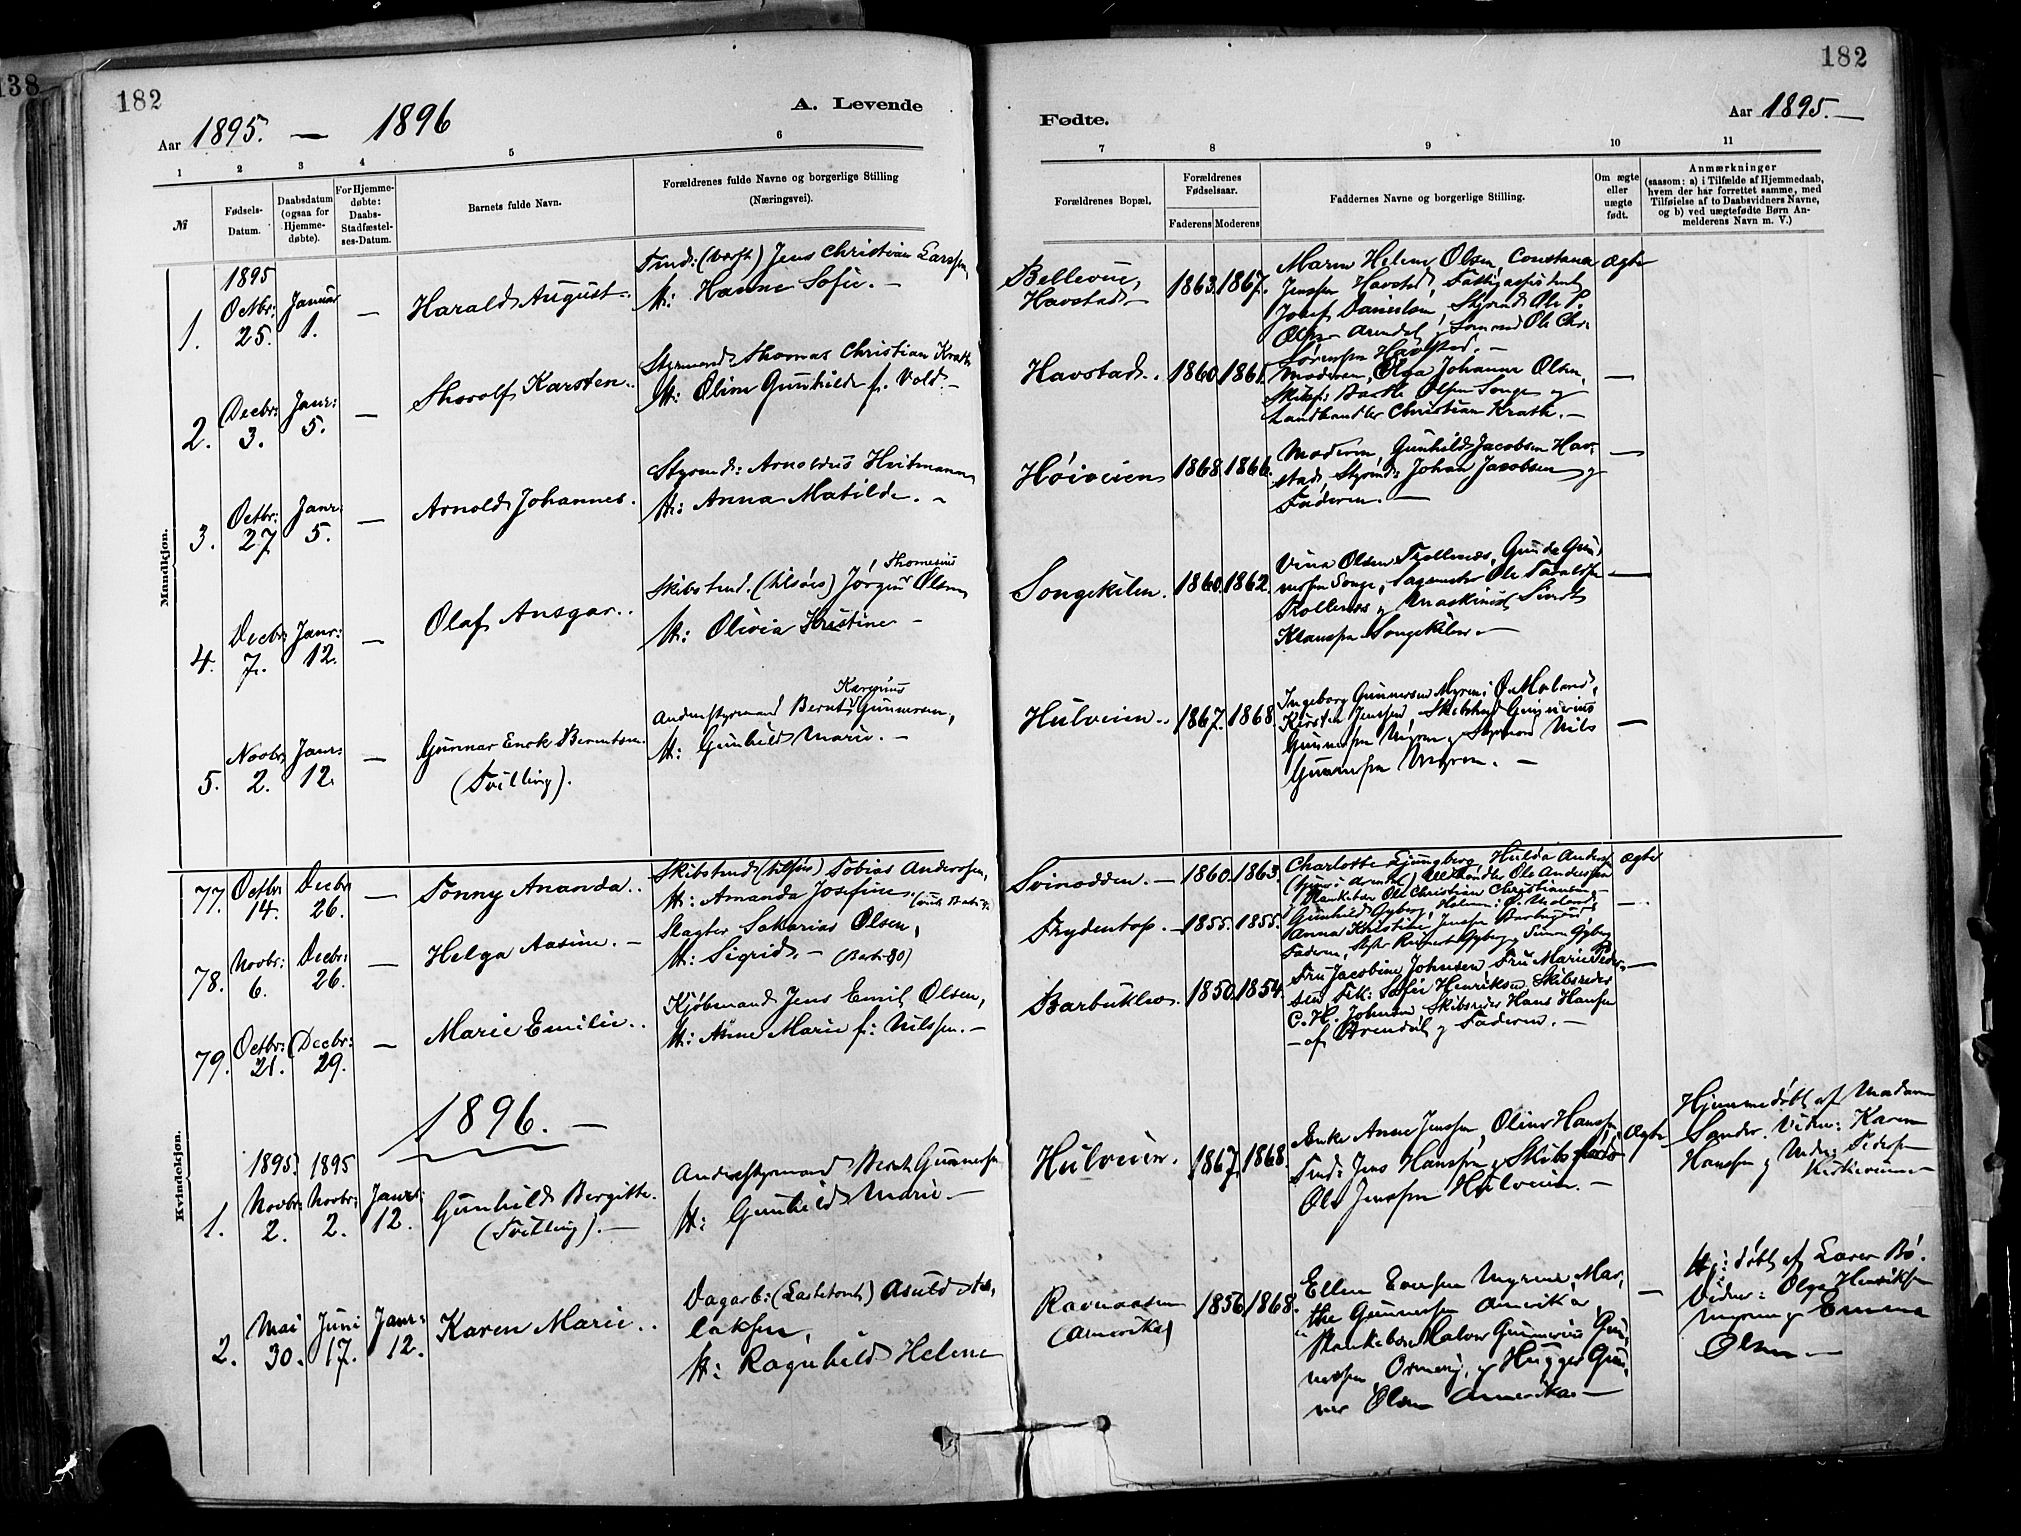 138
182
182
A. Levende
Fødte.
Aar 1895. — 1896
Aar 1895.—
1
2
3
4
5
6
7
8
9
10
11
№
Fødsels-
Datum.
Daabsdatum
(ogsaa for
Hjemme-
døbte).
For Hjemme-
døbte:
Daabs-
Stadfæstel-
ses-Datum.
Barnets fulde Navn.
Forældrenes fulde Navne og borgerlige Stilling
(Næringsvei).
Forældrenes Bopæl.
Forældrenes
Fødselsaar.
Faderens
Moderens
Faddernes Navne og borgerlige Stilling.
Om ægte
eller
uægte
født.
Anmærkninger
(saasom: a) i Tilfælde af Hjemmedaab,
hvem der har forrettet samme, med
Tilføielse af to Daabsvidners Navne,
og b) ved uægtefødte Børn An-
melderens Navn m. V.)
Mandkjøn.
1.
1895
Octbr:
25.
Januar
1.
—
Harald August.
Jens Christian Larssen,
H: Hanne Sofie. —
Bellevue,
Havstad.
1863.
1867.
Maren Helene Olsen, Constance
Jenssen Havsted, Fattigassistent
Josef Danielsen, Styrmd Ole P.
Olsen Arendal, Sømand Ole Chr.
Sørensen Havsted. —
Ægte
2.
Decbr:
3.
Janr:
5.
—
Thorolf Karsten.
Styrmand Thomas Christian Krath
H: Oline Gunhild f. Vold. —
Havstad.
1860
1861.
Moderen, Olga Johanne Olsen,
Olsen Songe og
Landhandler Christian Krath. —
—
3.
Octbr:
27
Janr:
5.
—
Arnold Johannes.
Styrmd: Arnoldus Hvitmann
H: Anna Matilde. —
Høiveien
1868
1866.
Moderen, Gunhild Jacobsen Hav-
stad, Styrmd: Johan Jacobsen og
Faderen. —
—
4.
Decbr:
7.
Janr:
12.
—
Olaf Ansgar.
Thomesius
Skibstmd. (tilsøes) Jørgen Olsen
H: Olivia Kristine —
Songekilen.
1860.
1862.
Olsen Trollenes, Gunda Gun-
nersen Songe,
Trollenes og Maskinist
Klausen Songekilen. —
—
5.
Novbr:
2.
Janr:
12.
—
Gunnar Enok Berntsen.
(Tvilling).
Andenstyrmand Bernt Gunnersen,
H: Gunhild Marie. —
Hulveien.
1867.
1868.
Ingeborg Gunnersen Myren i Ø. Moland,
Kirsten Jenssen, Skibstmd Gunnerius
Gunnersen Myren og Styrmand Nils
Gunnersen Myren. —
—
77.
Octbr:
14.
Decbr:
26.
—
Tonny Ananda.
Skibstmd (tilsøes) Tobias Anderssen,
H: Amanda Josefine.
Svinodden. —
1860.
1863.
Charlotte Ljungberg, Hulda Anders-
Ole Anderssen
Ole Christian Christiansen —
Ægte
78.
Novbr:
6.
Decbr:
26.
—
Helga Aasine. —
Slagter Sakarias Olsen,
H: Sigrid. —
Frydentop. —
1855.
1855.
Gunhild Gyberg, Holmen i Ø. Moland,
Anna Kristine Jenssen
Faderen, Gyberg
—
79.
Octbr:
21.
Decbr:
29.
—
Marie Emilie.
Kjøbmand Jens Emil Olsen,
H: Anne Marie f: Nilssen. —
Barbuklev
1850.
1854.
Fru Jacobine Johnsen, Fru Marie Peder-
sen, Frk: Sofie Henriksen, Skibsreder
C. H. Johnsen, Skibsreder Hans Hansen
— af Arendal og Faderen. —
—
1896. —
Kvindekjøn.
1.
1895.
Novbr:
2.
1895
Novbr:
2.
Janr:
12.
Gunhild Bergitte.
(Tvilling). —
Andenstyrmand Bernt Gunnersen
H: Gunhild Marie —
Hulveien.
1867.
1868.
Enke Anne Jenssen, Oline Hanssen,
Tmd: Jens Hanssen og
Ole Jenssen Hulveien. —
Ægte
Hjemmedøbt af Madam
Sander. Vidner: Karen
Hanssen og Pedersen
Kirkeveien
2.
Mai
30.
Juni
17.
Janr:
12.
Karen Marie.
Dagarb: Asuld As-
laksen,
H: Ragnhild Helene
Ravnaasen
(Amerika)
1856.
1868.
Ellen Evensen Myrene, Mar-
the Gunnersen Amerika,
Gunnerius Gun-
nersen og Hugger Gun-
ner Olsen Amerika —
—
Hj: døbt af
Vidner: Olga Henriksen
Myrene og Emma
Olsen —